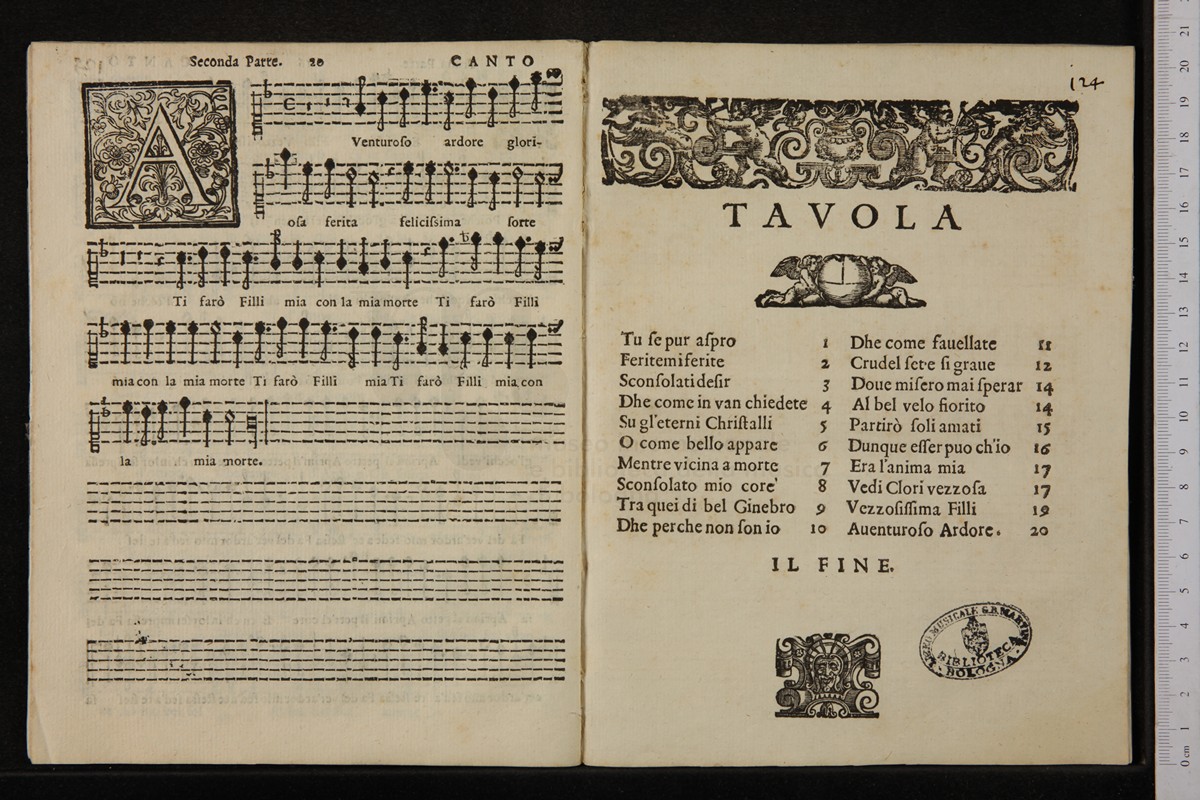 Seconda Parte. 20 CANTO
A
Venturoso ardore glori-
osa ferita felicissima sorte
Ti farò Filli mia con la mia morte Ti farò Filli
mia con la mia morte Ti farò Filli mia Ti farò Filli mia con
la mia morte.
124
TAVOLA
Tu se pur aspro 1
Feritemi ferite 2
Sconsolati desir 3
Dhe come in van chiedete 4
Su gl'eterni Christalli 5
O come bello appare 6
Mentre vicina a morte 7
Sconsolato mio core' 8
Tra quei di bel Ginebro 9
Dhe perche non son io 10
Dhe come fauellate 11
Crudel se te si graue 12
Doue misero mai sperar 14
Al bel velo fiorito 14
Partirò soli amati 15
Dunque esser puo ch'io 16
Era l'anima mia 17
Vedi Clori vezzosa 17
Vezzosissima Filli 19
Auenturoso Ardore. 20
IL FINE.
MUSEO MUSICALE G.B. MARTINI
BIBLIOTECA
BOLOGNA